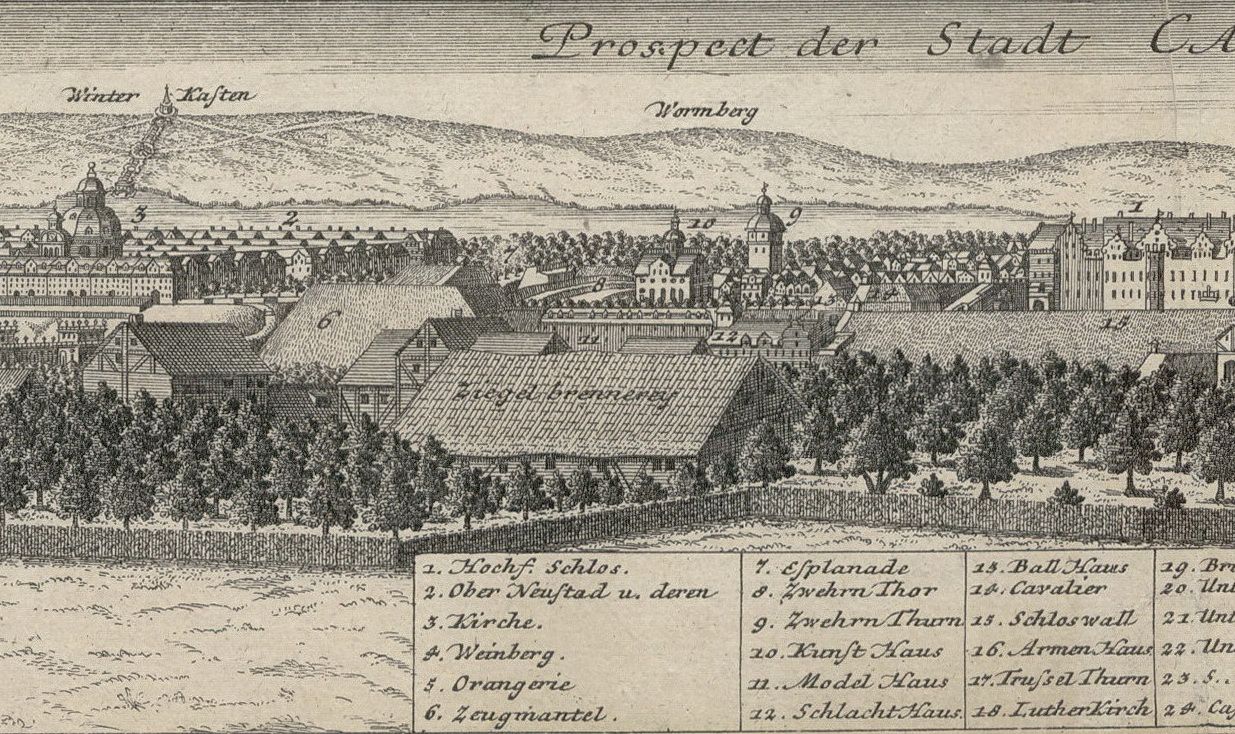 Prospect der Stadt CA
Winter Kaſten
Wormberg
1
10
9
3
2
7
8
13
14
6
15
11
12
Ziegel brennerey
1. Hochf. Schlos.
2. Ober Neuſtad u. deren
3. Kirche.
4. Weinberg.
5. Orangerie
6. Zeugmantel.
7. Eſplanade
8. Zwehrn Thor
9. Zwehrn Thurn
10. Kunſt Haus
11. Model Haus
12. Schlacht Haus
13. Ball Haus
14. Cavalier
15. Schloswall
16. Armen Haus
17. Truſsel Thurn
18. Luther Kirch
19. Br
20. Unt
21. Unt
22. Un
23. S..
24. Ca